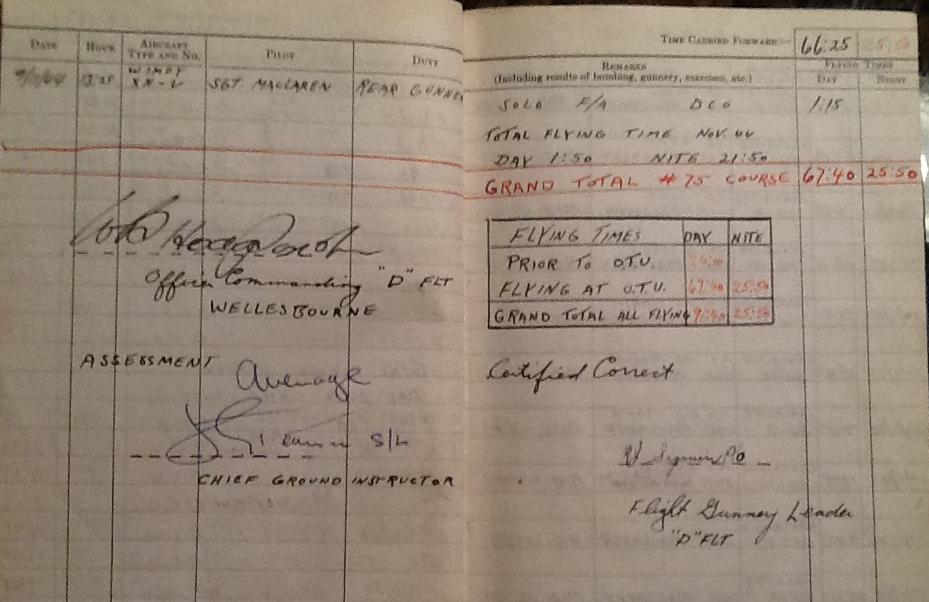 DATE HOUR AIRCRAFT TYPE AND NO. PILOT DUTY
9/11/44 13:25 WIMPY XN-V SGT MACLAREN REAR GUNNER
Officer Commanding "D" FLT
WELLESBOURNE
ASSESSMENT
Average
S/L
CHIEF GROUND INSTRUCTOR
TIME CARRIED FORWARD:— 66:25 25:50
REMARKS
(Including results of bombing, gunnery, exercises, etc.)
FLYING TIMES
DAY NIGHT
SOLO F/A DCO 1:15
TOTAL FLYING TIME NOV. 44
DAY 1:50 NITE 21:50
GRAND TOTAL #75 COURSE 67:40 25:50
FLYING TIMES DAY NITE
PRIOR TO O.T.U.
FLYING AT O.T.U. 67:40 25:50
GRAND TOTAL ALL FLYING 25:50
Certified Correct
Flight Gunnery Leader
"D" FLT